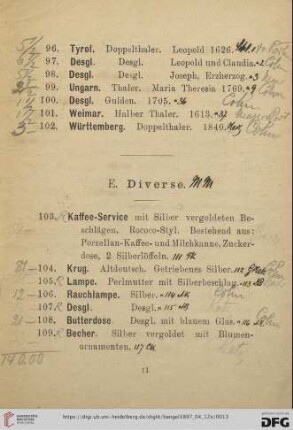 96. Tyrol. Doppelthaler. Leopold 1626.
97. Desgl. Desgl. Leopold und Claudia.
98. Desgl. Desgl. Joseph, Erzherzog.
99. Ungarn. Thaler. Maria Theresia 1760.
100. Desgl. Gulden. 1705.
101. Weimar. Halber Thaler. 1613.
102. Württemberg. Doppelthaler. 1840.
E. Diverse.
103. Kaffee-Service mit Silber vergoldeten Be-
schlägen. Rococo-Styl. Bestehend aus:
Porzellan-Kaffee- und Milchkanne, Zucker-
dose, 2 Silberlöffeln.
104. Krug. Altdeutsch. Getriebenes Silber.
105. Lampe. Perlmutter mit Silberbeschlag.
106. Rauchlampe. Silber.
107. Desgl. Desgl.
108. Butterdose. Desgl. mit blauem Glas.
109. Becher. Silber vergoldet mit Blumen-
ornamenten.
170.00
11
http://digi.ub.uni-heidelberg.de/diglit/hangel1897_04_12a/0013
UNIVERSITÄTS-
BIBLIOTHEK
HEIDELBERG
gefördert durch die
DFG